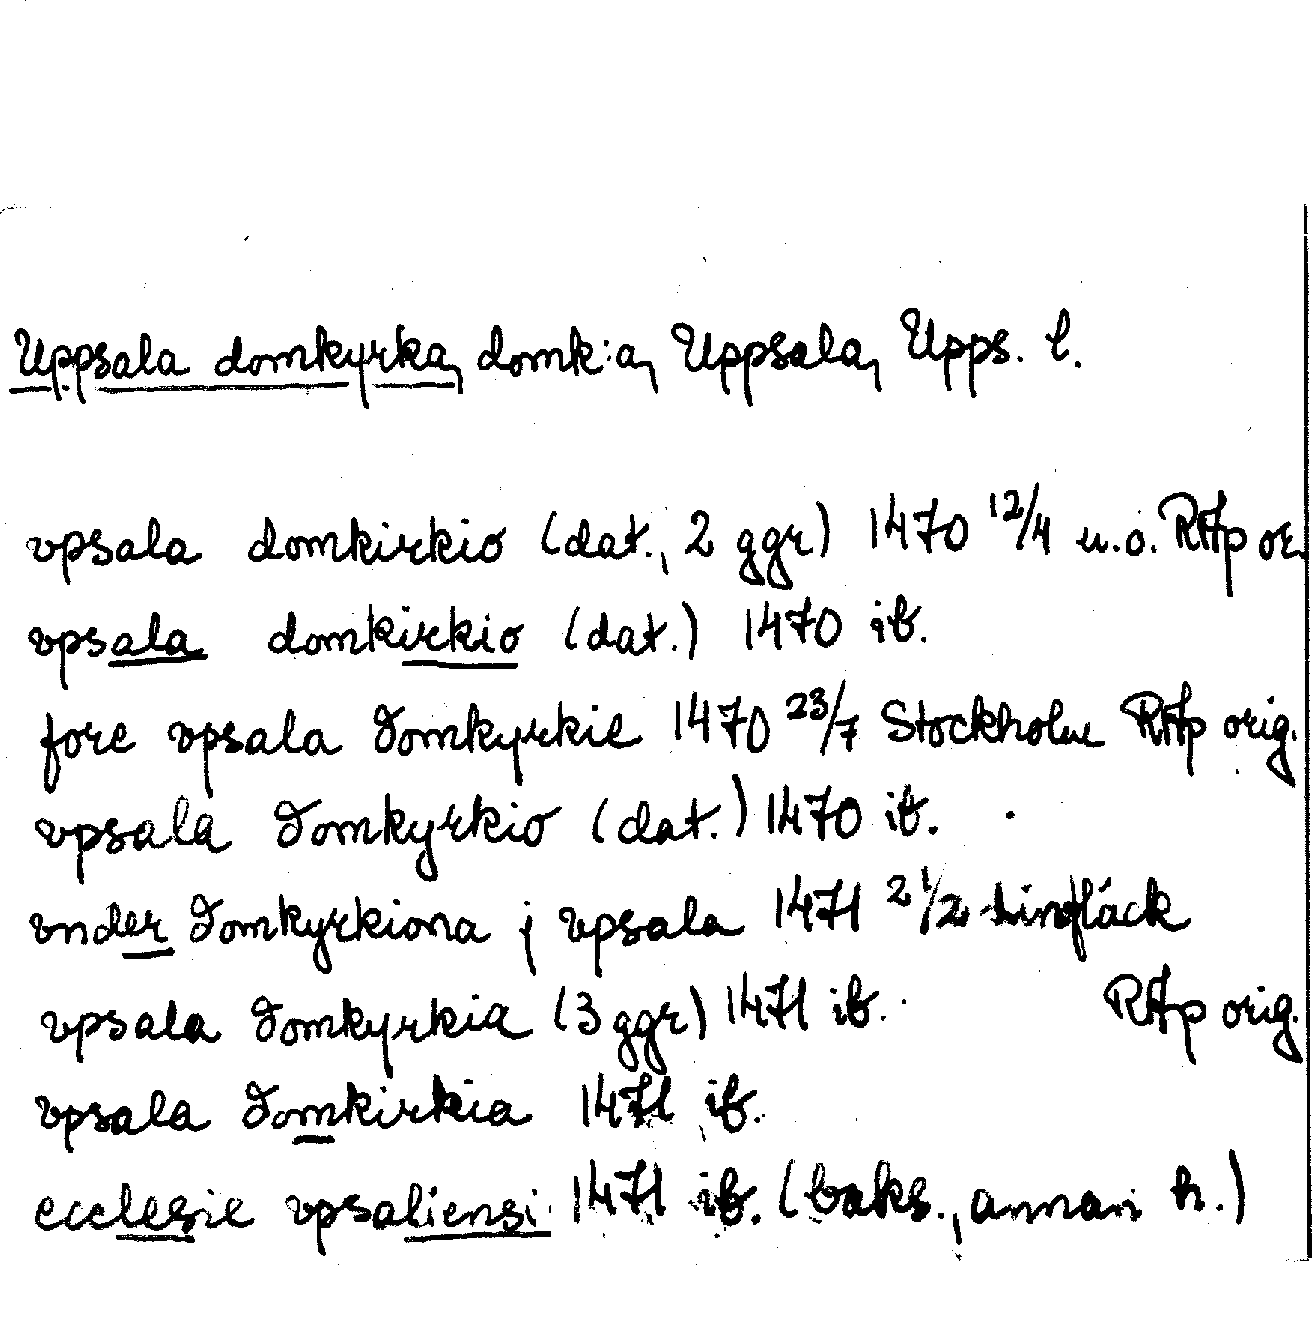 Uppsala domkyrka, domk:a, Uppsala, Upps. l.
vpsala domkirkio (dat., 2 ggr) 1470 12/4 u.o. RAp or.
vpsala domkirkio (dat.) 1470 ib.
fore vpsala domkyrkie 1470 23/7 Stockholm RAp orig.
vpsala domkyrkio (dat.) 1470 ib.
vnder domkyrkiona j vpsala 1471 2 1/2
vpsala domkyrkia (3 ggr) 1471 ib. RAp orig.
vpsala domkirkia 1471 ib.
ecclesie vpsaliensi 1471 ib. (baks., annan h.)